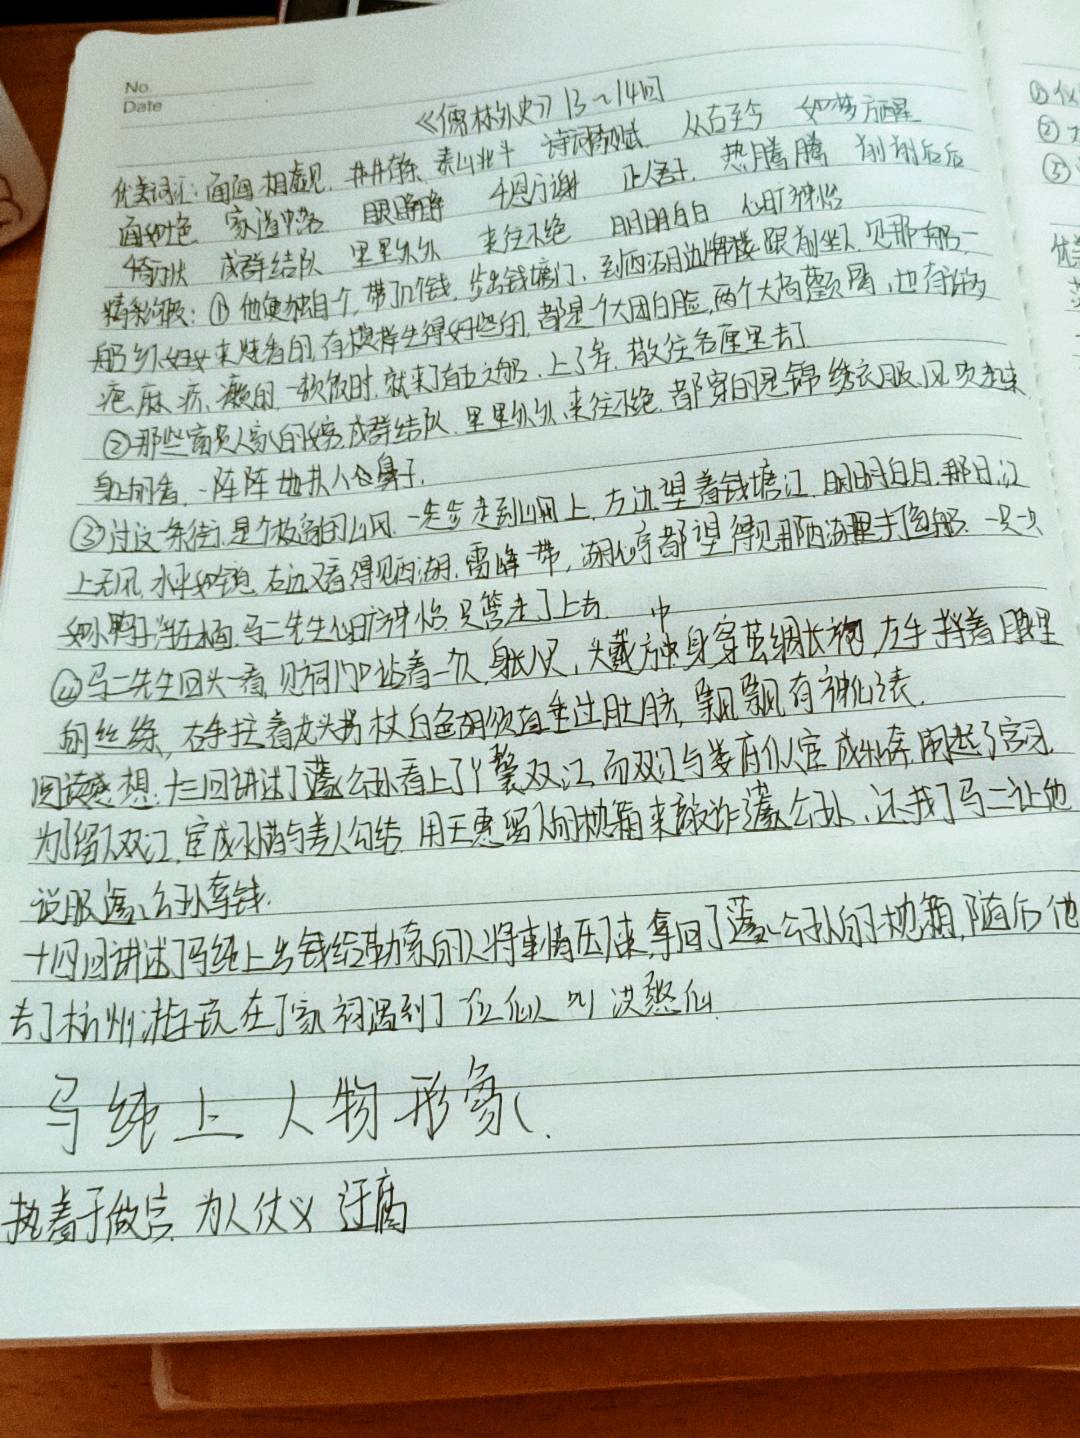 No.
Date
《儒林外史》13~14回
优美词汇：面面相觑 井井有条 泰山北斗 诗词歌赋 从古至今 如梦方醒
面如土色 家道中落 眼睁睁 千恩万谢 正人君子 热腾腾 前前后后
奇形怪状 成群结队 里里外外 来往不绝 明明白白 心旷神怡
精彩片段：①他便独自一个,带了几个钱,步出钱塘门,到西湖沿上牌楼跟前坐下,见那一船一
船乡下妇女来烧香的,有模样生得好些的,都是一个大团白脸,两个大高颧骨,也有许多
疤、麻、疥、癞的,一顿饭时,就来了有五六船,上了岸,散往各庙里去了
②那些富贵人家的女客,成群结队,里里外外,来往不绝,都穿的是锦绣衣服,风吹起来
身上的香,一阵阵地扑人的鼻子.
③过这条街,是个极高的山冈,一步步走到山冈上,左边望着钱塘江,明明白白,那日江
上无风,水平如镜,右边又看得见西湖,雷峰一带,湖心亭都望得见那西湖里打鱼船,一只一只
如小鸭子浮在水面,马二先生心旷神怡,只管走了上去.
④马二先生回头一看,见祠门口站着一人,身长八尺,头戴方巾,身穿茧绸长袍,左手捋着腰里
的丝绦,右手拄着龙头拐杖,白色胡须直垂过肚脐,飘飘有神仙之表.
阅读感想：十三回讲述了蘧公孙看上了丫鬟双红,而双红与娄府仆人宦成私奔,闹起了官司
为了留下双红,宦成不惜与差人勾结,用王惠留下的枕箱来敲诈蘧公孙,还找了马二让他
说服蘧公孙拿钱.
十四回讲述了马纯上出钱给勒索的人将事情压下来,拿回了蘧公孙的枕箱,随后他
去了杭州游玩,在丁家祠遇到了一位仙人叫洪憨仙.
马纯上人物形象
执着于做官 为人仗义 迂腐
①
②
③